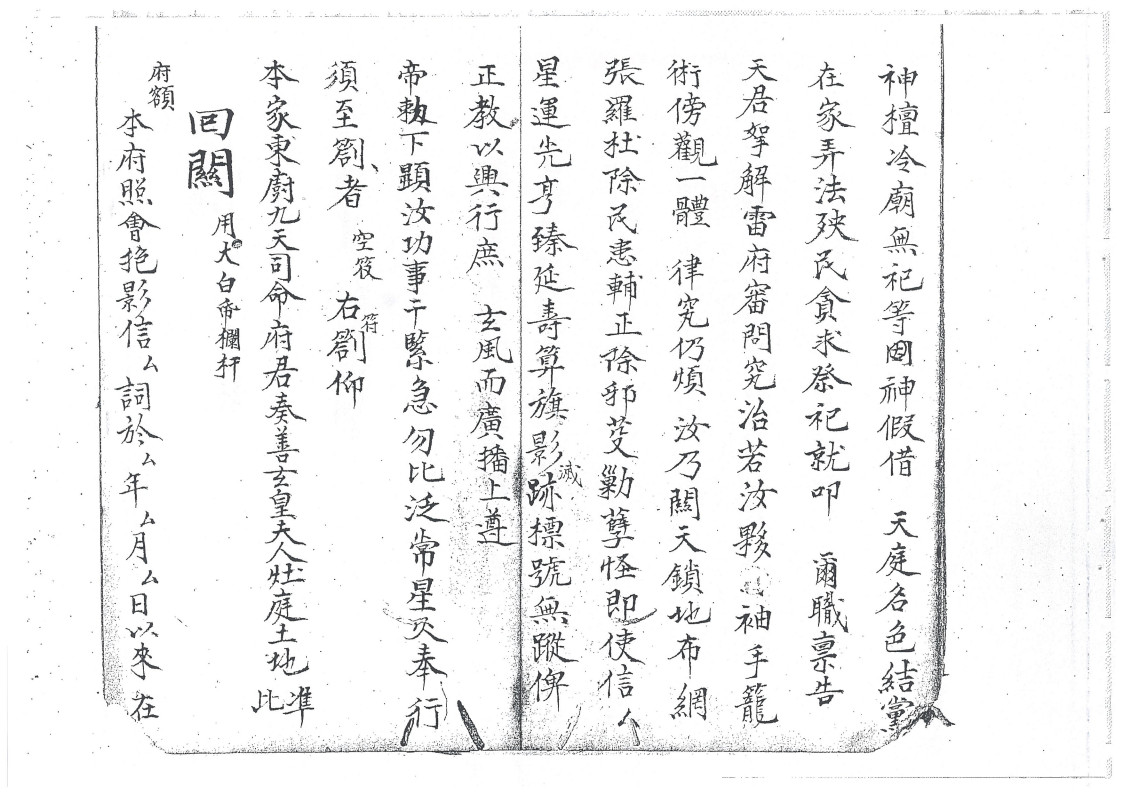 神檀冷廟無祀等囼神假借　天庭名色結黨
在家弄法殃民貪求祭祀就叩　爾職禀告
天君拏解雷府審問究治若汝夥　袖手籠
術傍觀一體　律究仍煩　汝乃關天鎖地布網
張羅杜除民患輔正除邪芟勦孽怪即使信厶
星運光亨臻延壽算旗影滅跡標號無蹤俾
正教以興行庶　玄風而廣播上遵
帝勅下顕汝功事干緊急勿比泛常星火奉行
須至劄者　空筊　符　右劄仰
本家東廚九天司命府君奏善玄皇夫人灶庭土地　准此
回關　用大白帝欄杆
府額
本府照會抱影信厶詞於厶年厶月厶日以來　在